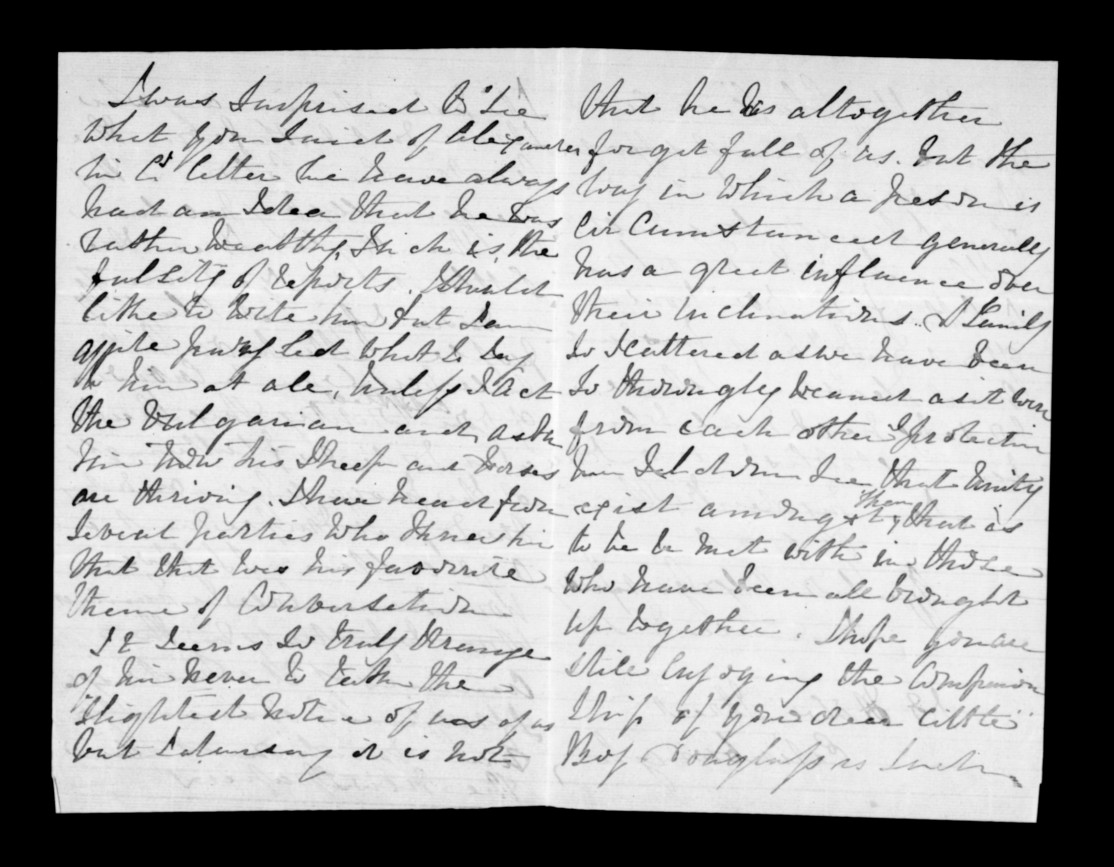 I was Surprised to See
what you Said of Alexander
in letter we have always
had an Idea that he was
rather wealthy, Such is the
falsity of reports. I Should
like to write him but I am
quite puzzled what to Say
to him at all, unless I Act
the vulgarian and ask
him how his Sheep and horses
are thriving. I have heard from
Several parties who knew him
that that was his favourite
theme of Conversation
It Seems So truly Strange
of him never to take the
Slightest notice of us
but I daresay it is not
that he is altogether
forgetfull of us. but the
way in which a person is
Circumstanced generally
has a great influence over
their inclinations. A Family
So Scattered as we have been
So thoroughly weaned as it were
from each other & protection
how Seldom do we See that Unity
exist amongst them that is
to be met with in those
who have been all brought
up together. I hope you are
Still Enjoying the Companion
Ship of your dear little
Boy Douglass as Such